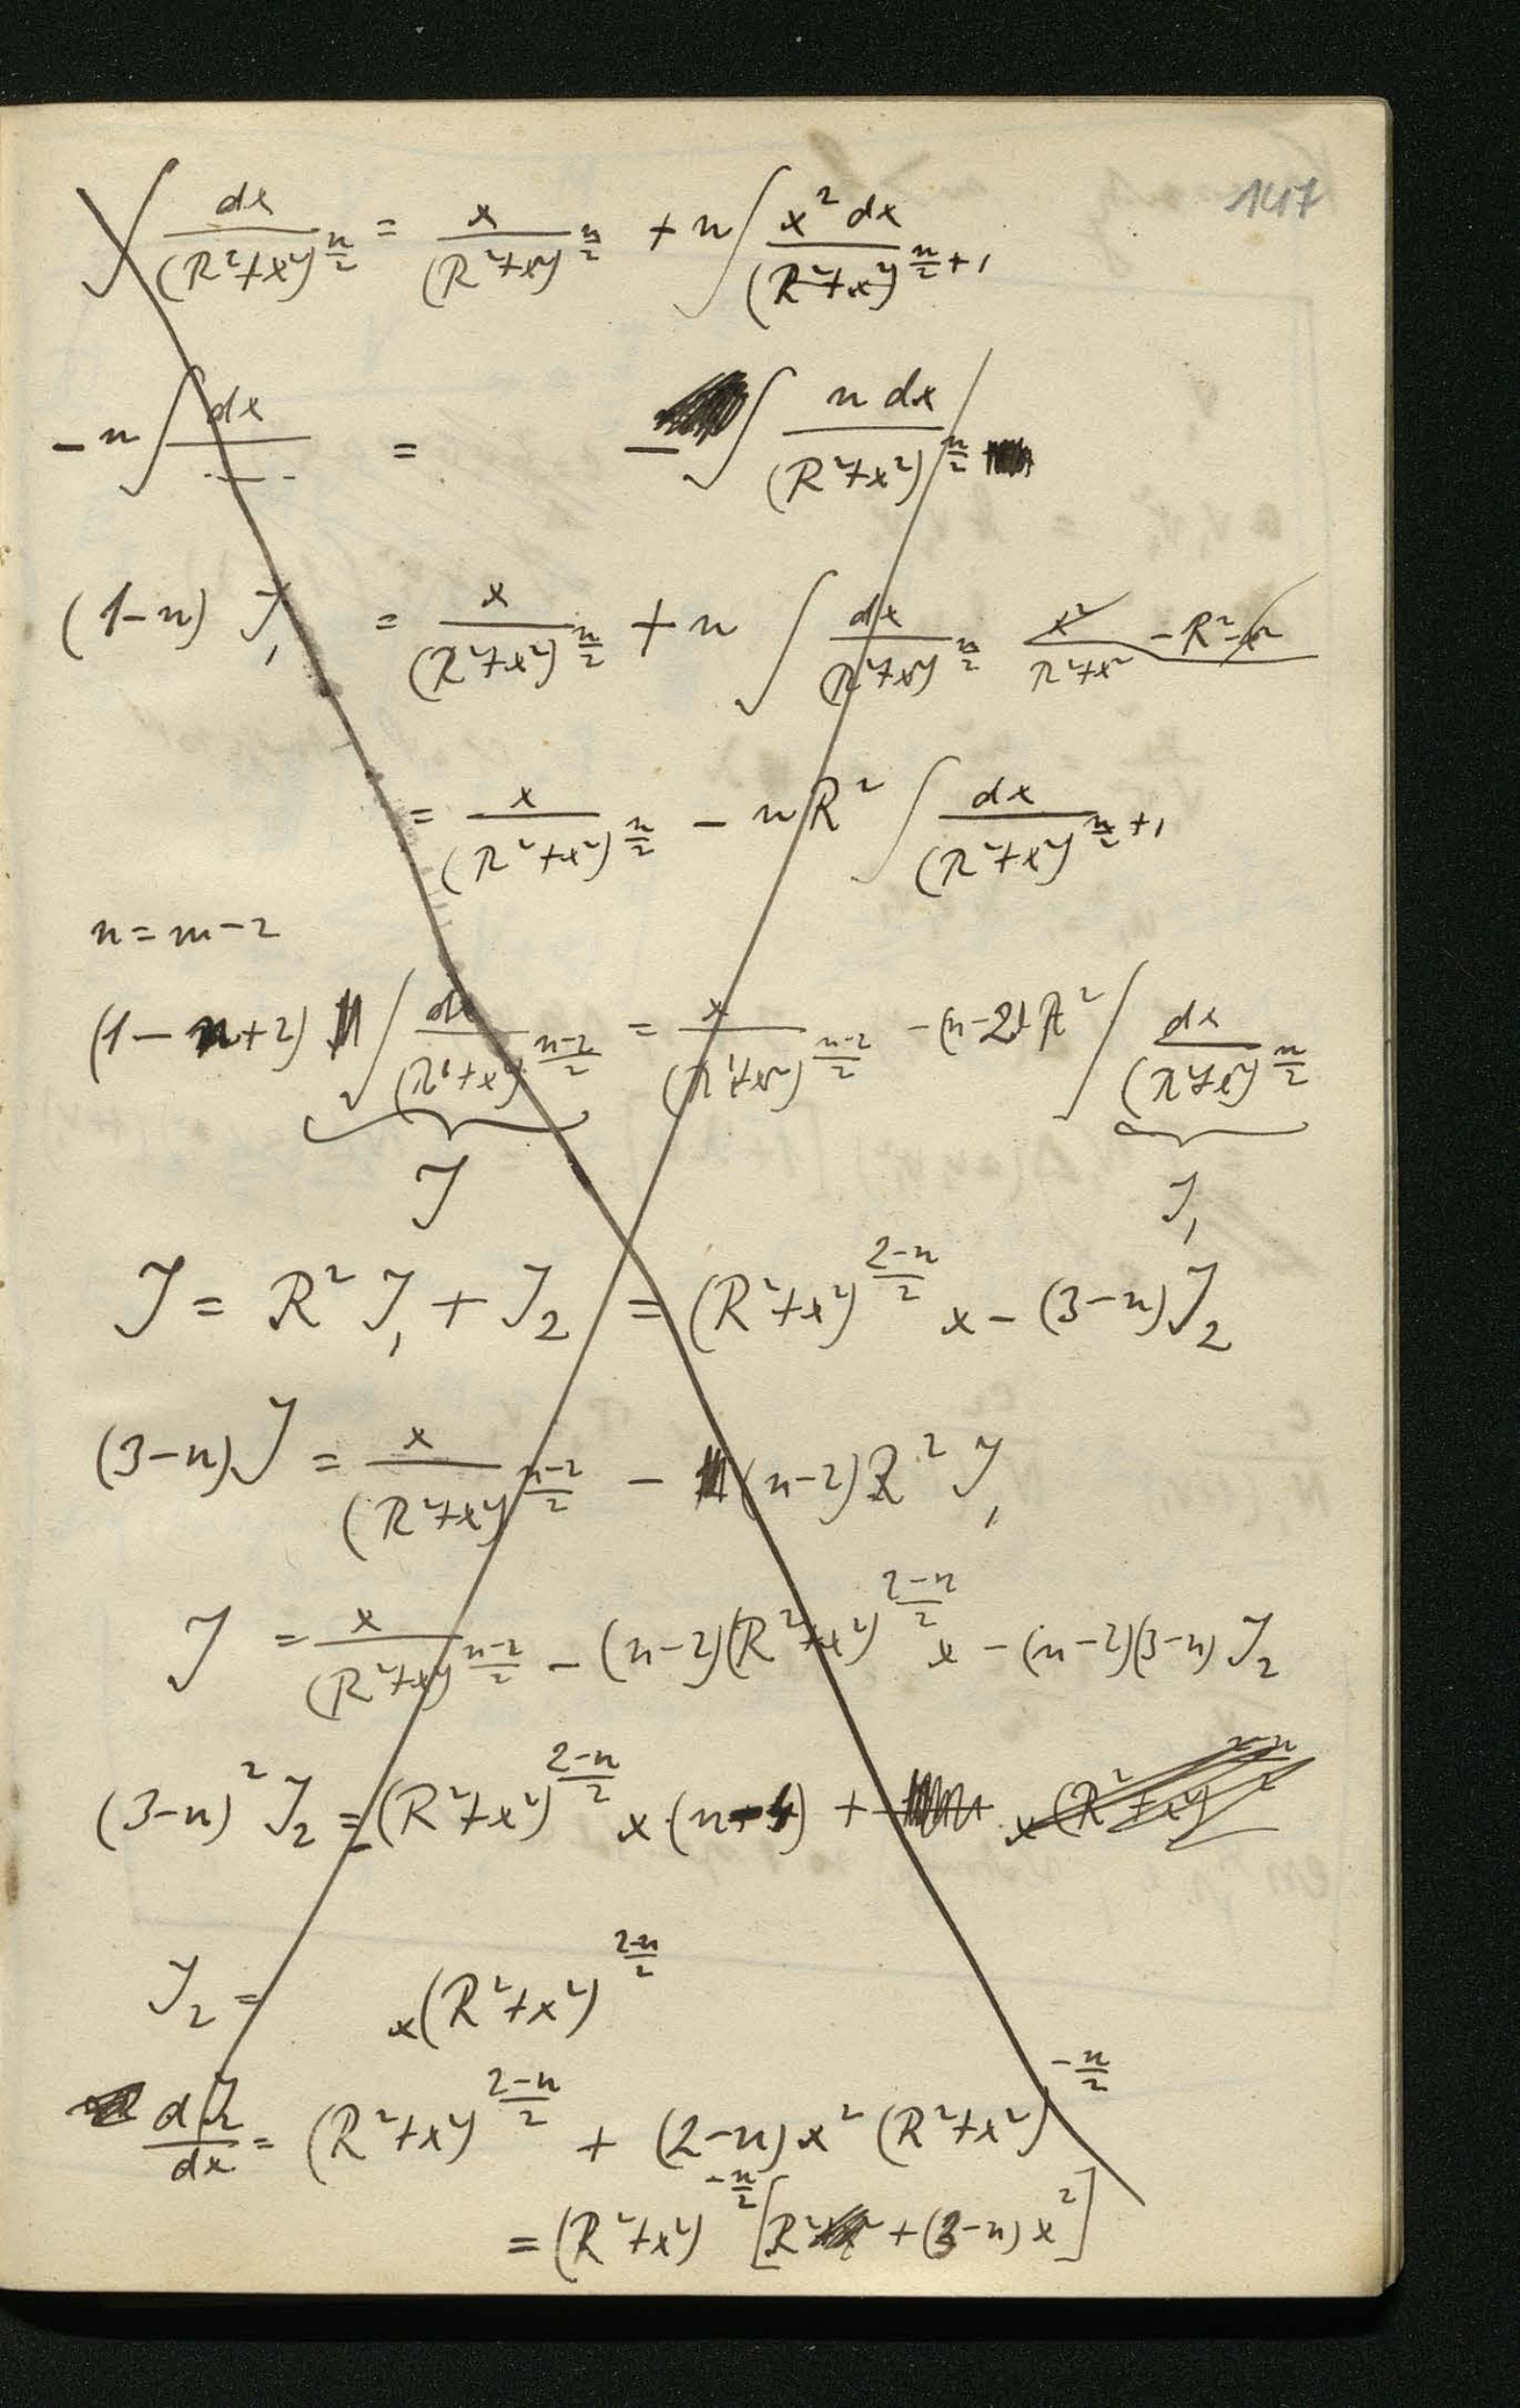 147
∫ dx/(R²+x²)^{n/2} = x/(R²+x²)^{n/2} + n ∫ x² dx/(R²+x²)^{n/2 + 1}
- n ∫ dx/- - - = - ∫ n dx/(R²+x²)^{n/2}
(1-n) J₁ = x/(R²+x²)^{n/2} + n ∫ dx/(R²+x²)^{n/2} (x² - R² - x²)/(R²+x²)
= x/(R²+x²)^{n/2} - n R² ∫ dx/(R²+x²)^{n/2 + 1}
n = m - 2
(1 - n + 2) ∫ dx/(R²+x²)^{(n-2)/2} = x/(R²+x²)^{(n-2)/2} - (n-2) R² ∫ dx/(R²+x²)^{n/2}
J J₁
J = R² J₁ + J₂ = (R²+x²)^{(2-n)/2} x - (3-n) J₂
(3-n) J = x/(R²+x²)^{(n-2)/2} - (n-2) R² J₁
J = x/(R²+x²)^{(n-2)/2} - (n-2)(R²+x²)^{(2-n)/2} x - (n-2)(3-n) J₂
(3-n)² J₂ = (R²+x²)^{(2-n)/2} x (n-4) + x (R²+x²)^{(2-n)/2}
J₂ = x (R²+x²)^{(2-n)/2}
dJ₂/dx = (R²+x²)^{(2-n)/2} + (2-n) x² (R²+x²)^{-n/2}
= (R²+x²)^{-n/2} [R² + (3-n) x²]